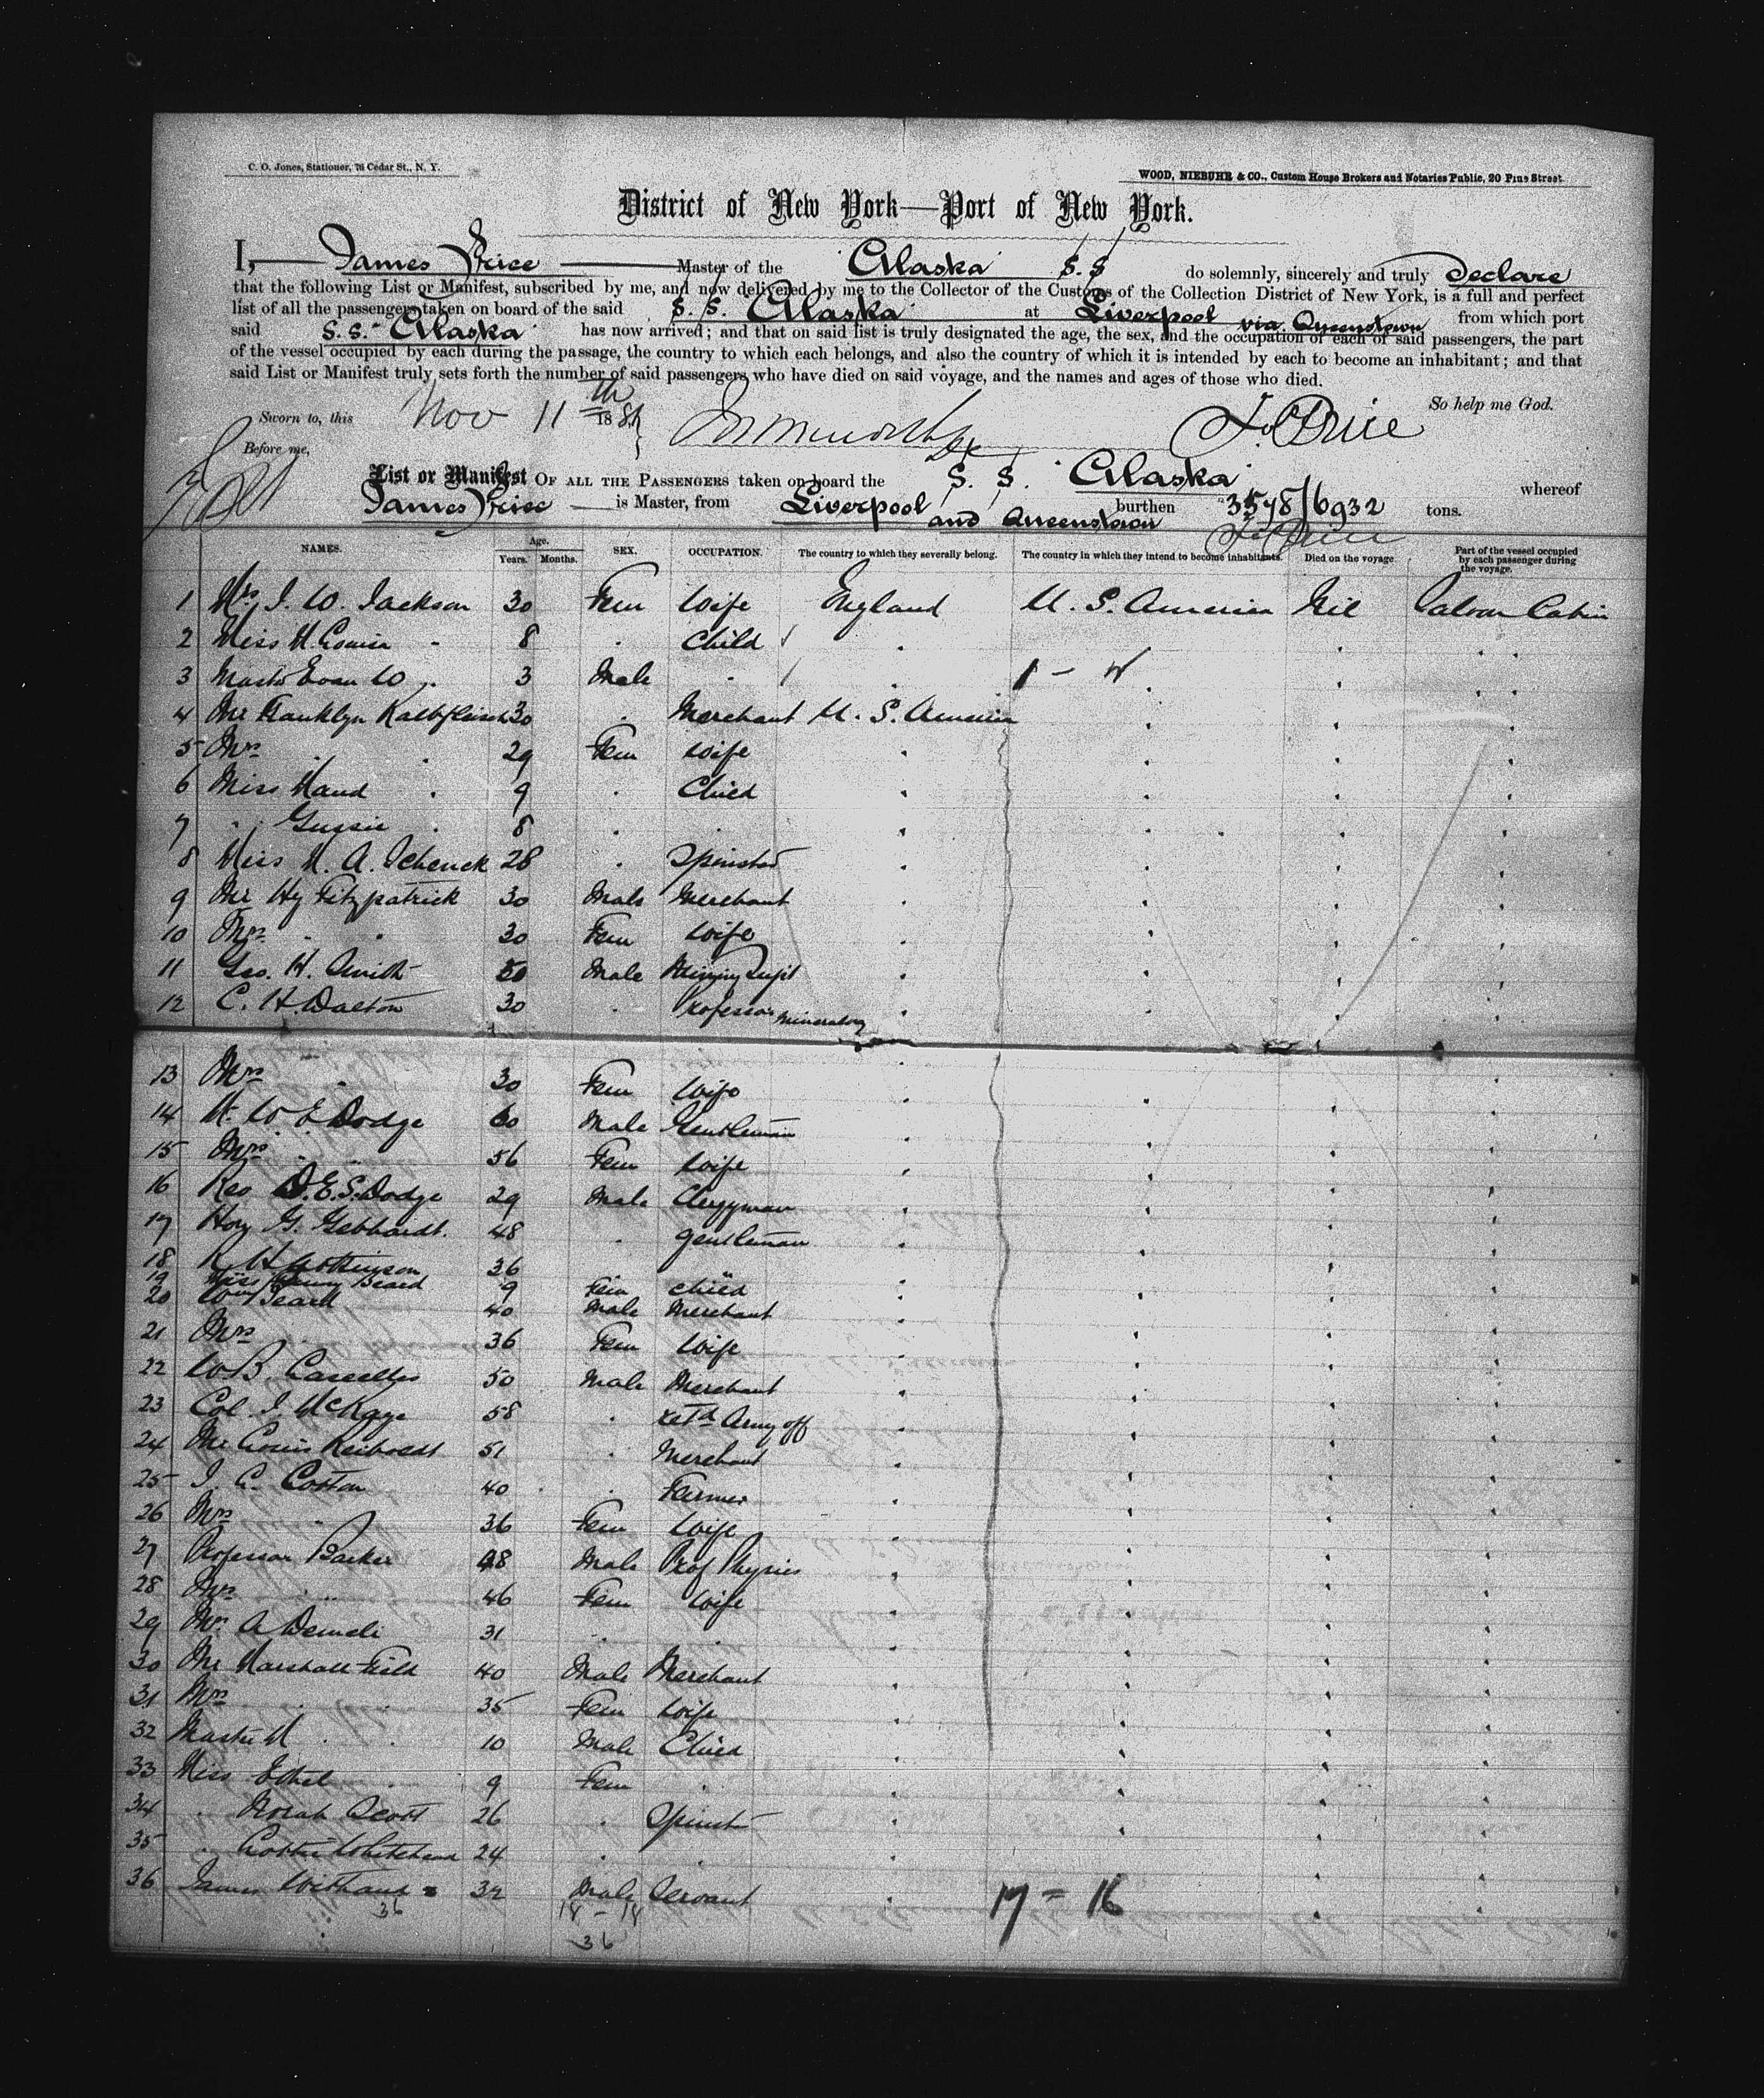 C. O. Jones, Stationer, 76 Cedar St., N. Y.
WOOD, NIEBUHR & CO., Custom House Brokers and Notaries Public, 20 Pine Street
District of New York—Port of New York.
I, James Price Master of the Alaska S.S do solemnly, sincerely and truly Declare
that the following List or Manifest, subscribed by me, and now delivered by me to the Collector of the Customs of the Collection District of New York, is a full and perfect
list of all the passengers taken on board of the said S. S. "Alaska" at Liverpool via Queenstown from which port
said S.S. "Alaska" has now arrived; and that on said list is truly designated the age, the sex, and the occupation of each of said passengers, the part
of the vessel occupied by each during the passage, the country to which each belongs, and also the country of which it is intended by each to become an inhabitant; and that
said List or Manifest truly sets forth the number of said passengers who have died on said voyage, and the names and ages of those who died.
So help me God.
Sworn to, this Nov 11th 188
Before me,
Js Price
List or Manifest OF ALL THE PASSENGERS taken on board the S. S. "Alaska" whereof
James Price is Master, from Liverpool and Queenstown burthen 3578/6932 tons.
NAMES. Age. Years. Months. SEX. OCCUPATION. The country to which they severally belong. The country in which they intend to become inhabitants. Died on the voyage. Part of the vessel occupied by each passenger during the voyage.
1 Mrs J. W. Jackson 30 Fem Wife England U. S. America Nil Saloon Cabin
2 Miss M. Louisa " 8 " Child
3 Mastr Evan W " 3 Male "
4 Mr Franklyn Kalbfleisch 30 " Merchant U. S. America
5 Mrs " " 29 Fem Wife
6 Miss Maud " 9 " Child
7 " Gussie " 8 " "
8 Miss M. A. Schenck 28 " Spinster
9 Mr Hy Fitzpatrick 30 Male Merchant
10 Mrs " " 30 Fem Wife
11 Geo. H. Smith 50 Male Mining Supt
12 C. H. Dalton 30 " Professor Mineralogy
13 Mrs " 30 Fem Wife
14 W E Dodge 60 Male Gentleman
15 Mrs " " 56 Fem Wife
16 Rev D. E. S. Dodge 29 Male Clergyman
17 G. Gebhardt. 48 " Gentleman
18 R H 36 "
19 Miss Beard 9 Fem Child
20 Wm Beard 40 Male Merchant
21 Mrs " 36 Fem Wife
22 W. B. 50 Male Merchant
23 Col. J. McKaye 58 " retd Army off
24 Mr Louis 51 " Merchant
25 J. C. Cotton 40 " Farmer
26 Mrs " 36 Fem Wife
27 Professor Barker 48 Male Prof Physics
28 Mrs " 46 Fem Wife
29 Mrs A 31 " "
30 Mr Marshall Field 40 Male Merchant
31 Mrs " " 35 Fem Wife
32 Master M " " 10 Male Child
33 Miss Ethel " 9 Fem "
34 " Norah Scott 26 " Spinstr
35 " Lottie Whitehead 24 " "
36 James 32 Male Servant
36
18 - 18
36
17 = 16